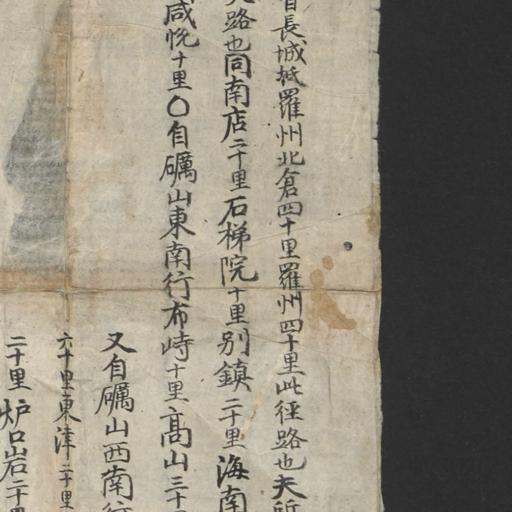 長城抵羅州北倉四十里羅州四十里此徑路也夫
路也同南店二十里石梯院十里別鎮二十里海南
咸悅十里〇自礪山東南行布峙十里高山三十
又自礪山西南行
六十里東津二十里
二十里炉口岩二十里